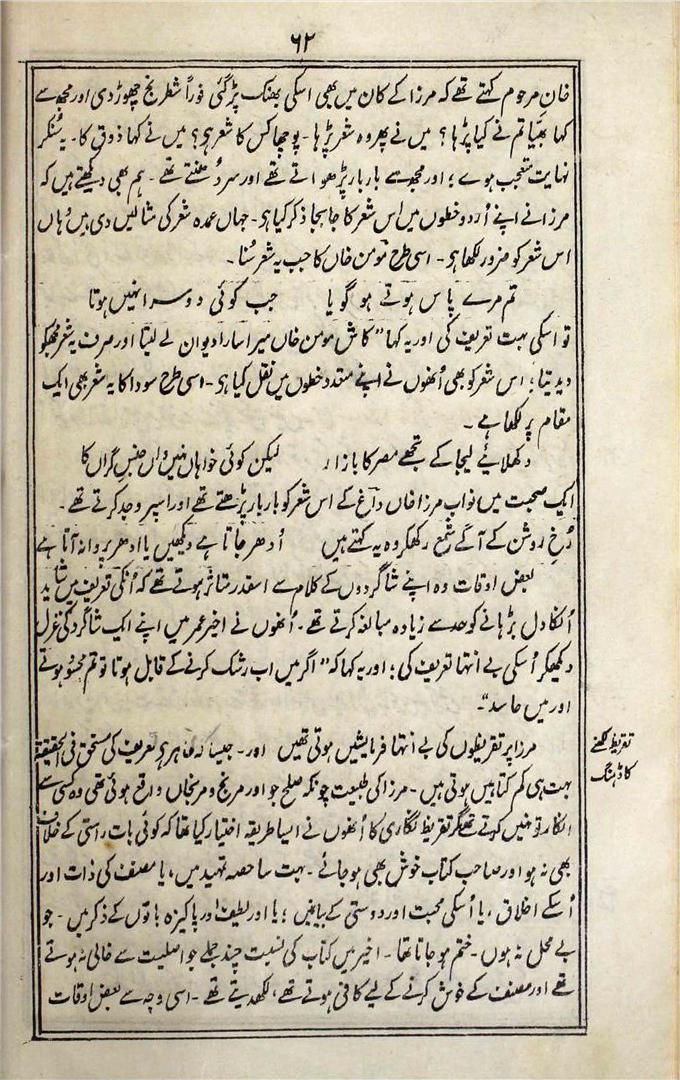 ۶۲
خان مرحوم کہتے تھے کہ مرزا کے کان میں بھی اسکی بھنک پڑ گئی فوراً شطرنج چھوڑ دی اور مجھسے
کہا بھیّا تم نے کیا پڑہا؟ میں نے پھر وہ شعر پڑہا۔ پوچھا کس کا شعر ہی؟ میں نے کہا ذوق کا۔ یہ سُنکر
نہایت متعجب ہوے؛ اور مجھسے بار بار پڑھواتے تھے اور سر دُھنتے تھے۔ ہم بھی دیکھتے ہیں کہ
مرزا نے اپنے اُردو خطوں میں اس شعر کا جا بجا ذکر کیا ہی۔ جہاں عمدہ شعر کی مثالیں دی ہیں وُہاں
اس شعر کو ضرور لکھا ہی۔ اسی طرح مومن خاں کا جب یہ شعر سُنا۔
تم مرے پاس ہوتے ہو گویا جب کوئی دوسرا نہیں ہوتا
تو اسکی بہت تعریف کی اور یہ کہا "کاش مومن خاں میرا سارا دیوان لے لیتا اور صرف یہ شعر مجھکو
دیدیتا؛ اس شعر کو بھی اُنھوں نے اپنے متعدد خطوں میں نقل کیا ہی۔ اسی طرح سودا کا یہ شعر بھی ایک
مقام پر لکھا ہے۔
دکھلائیے لیجا کے تجھے مصر کا بازار لیکن کوئی خواہاں نہیں واں جنسِ گراں کا
ایک صحبت میں نواب مرزا خاں داغ کے اس شعر کو بار بار پڑھتے تھے اور اسپر وجد کرتے تھے۔
رُخِ روشن کے آگے شمع رکھکر وہ یہ کہتے ہیں اُدھر جاتا ہے دیکھیں یا ادھر پروانہ آتا ہے
بعض اوقات وہ اپنے شاگردوں کے کلام سے اسقدر متاثر ہوتے تھے کہ اُنکی تعریف میں شاید
اُنکا دل بڑہانے کو حد سے زیادہ مبالغہ کرتے تھے۔ اُنھوں نے اخیر عمر میں اپنے ایک شاگرد کی غزل
دیکھکر اُسکی بے انتہا تعریف کی؛ اور یہ کہا کہ "اگر میں اب رشک کرنے کے قابل ہوتا تو تم محسود ہوتے
اور میں حاسد"۔
مرزا پر تقریظوں کی بے انتہا فرمایشیں ہوتی تھیں اور۔ جیسا کہ ظاہر ہی تعریف کی مستحق فی الحقیقۃ
بہت ہی کم کتابیں ہوتی ہیں۔ مرزا کی طبیعت چونکہ صلح جو اور مرنج و مرنجاں واقع ہوئی تھی وہ کسی سے
انکار تو نہیں کرتے تھے مگر تقریظ نگاری کا اُنھوں نے ایسا طریقہ اختیار کیا تھا کہ کوئی بات راستی کے خلاف
بھی نہ ہو اور صاحب کتاب خوش بھی ہو جائے۔ بہت سا حصہ تمہید میں، یا مصنف کی ذات اور
اُسکے اخلاق، یا اُسکی محبت اور دوستی کے بیانمیں؛ یا اور لطیف اور پاکیزہ باتوں کے ذکر میں۔ جو
بے محل نہ ہوں۔ ختم ہو جاتا تھا۔ اخیر میں کتاب کی نسبت چند جملے جو اصلیت سے خالی نہ ہوتے
تھے اور مصنف کے خوش کرنے کے لیے کافی ہوتے تھے، لکھدیتے تھے۔ اسی وجہ سے بعض اوقات
تقریظ لکھنے
کا ڈہنگ